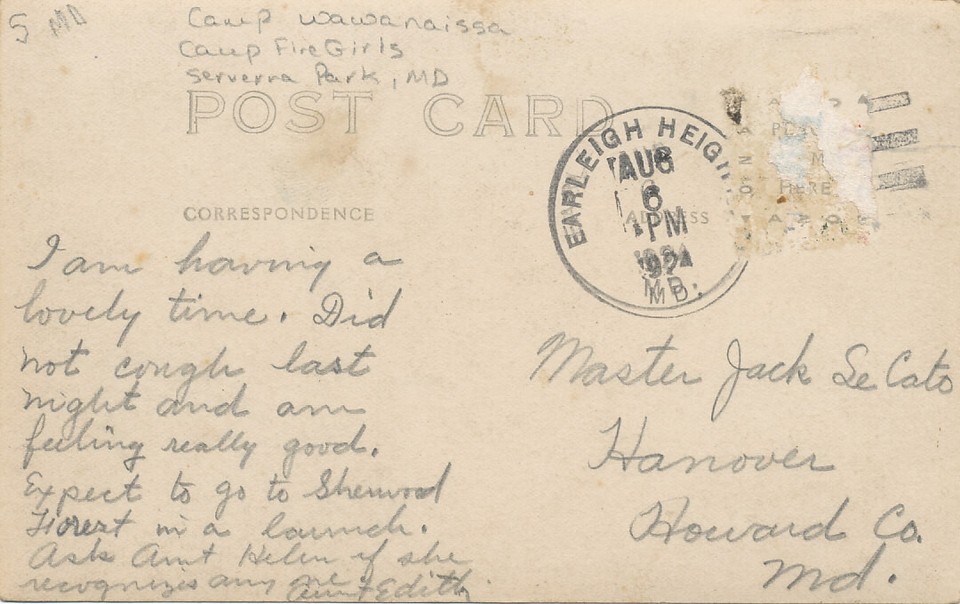 5 MD
Camp Wawanaissa
Camp Fire Girls
Serverna Park, MD
POST CARD
CORRESPONDENCE
ADDRESS
EARLEIGH HEIGH
AUG
6
PM
1924
MD.
HERE
I am having a
lovely time. Did
not cough last
night and am
feeling really good.
Expect to go to Sherwood
Forest in a launch.
Ask Aunt Helen if she
recognizes any one
Aunt Edith.
Master Jack Le Cato
Hanover
Howard Co.
Md.